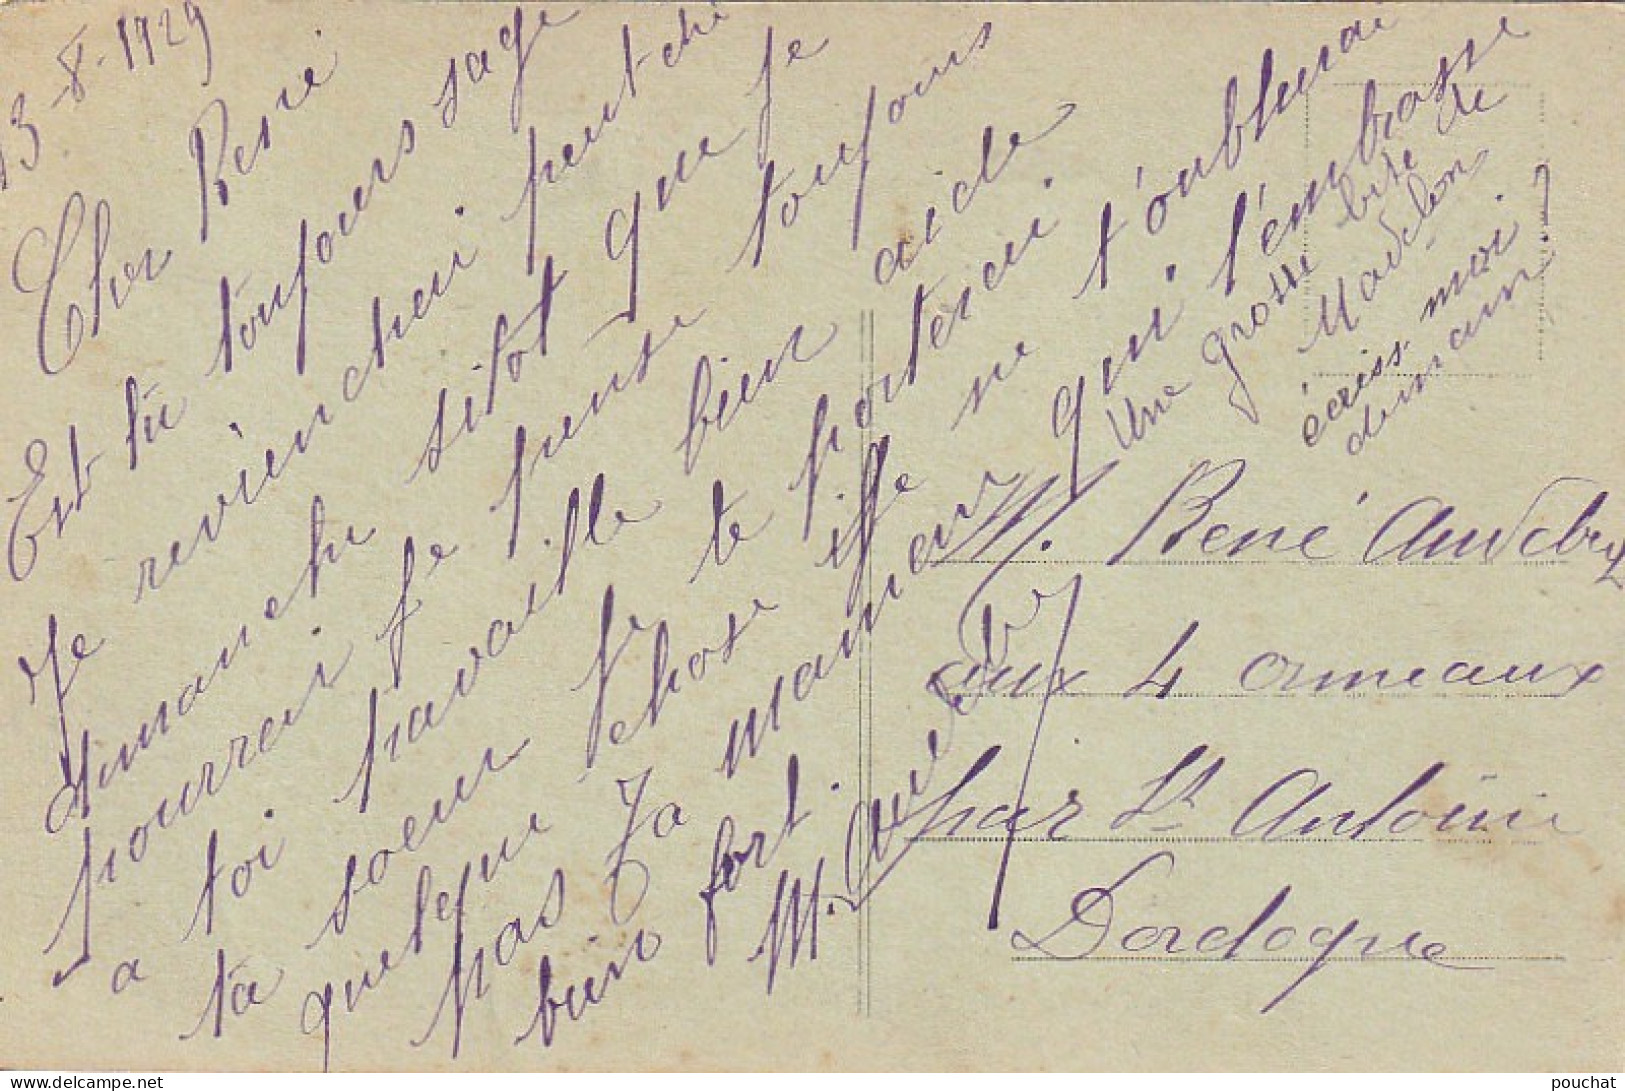 13-8-1929
Cher René
Est tu toujours sage
Je revien chez peut etre
dimanche sitot que je
pourrai je pense toujours
a toi travaille bien aide
ta soeur je te porterai
quelque chose je ne t'oublirai
pas Ta maman qui t'embrasse
bien fort.
M. Audebry
Une grosse bise de
Madelon
écriss. moi
demain.
M. René Audebry
aux 4 ormeaux
par St Antoine
Dordogne
delcampe.net
pouchat